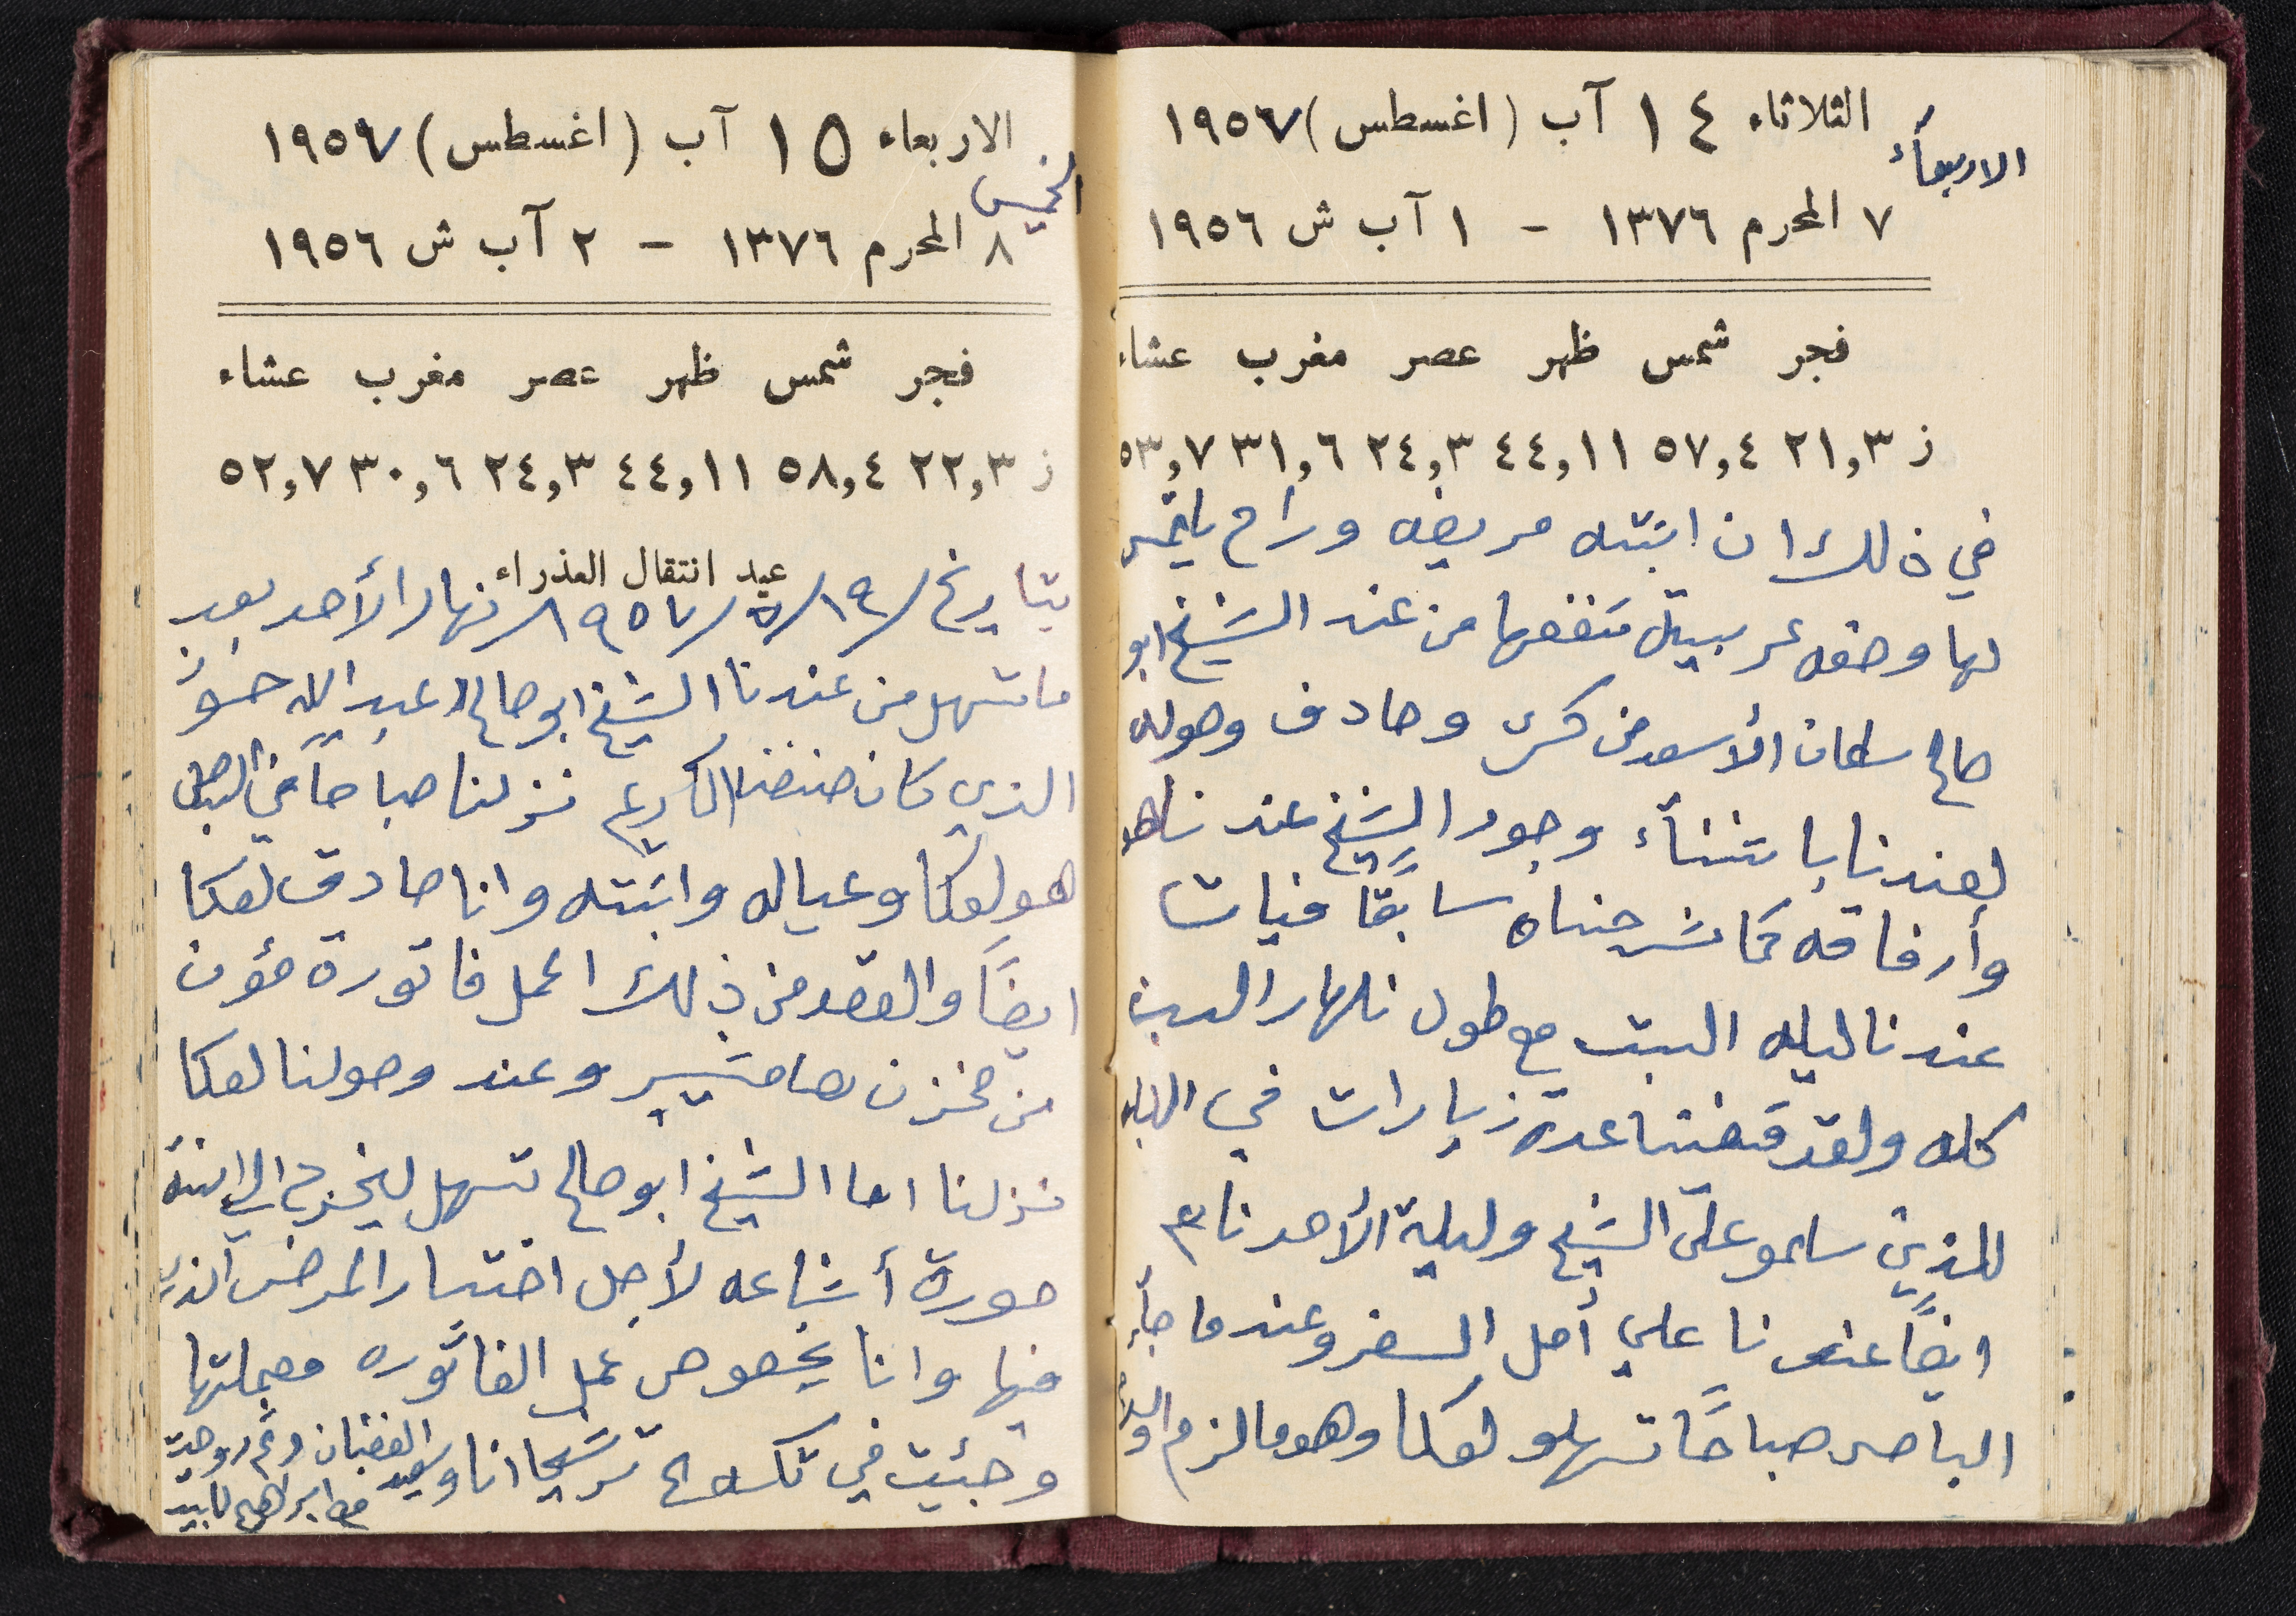 الثلاثاء ١٤ آب (اغسطس) ١٩٥٧
الاربعأء
٧ المحرم ١٣٧٦ - ١ آب ش ١٩٥٦
فجر شمس ظهر عصر مغرب عشاء
ز ٢١,٣ ٥٧,٤ ٤٤,١١ ٢٤,٣ ٣١,٦ ٥٣,٧
في ذلك ان ابنته مريضه وراح
لها وصفه عربيه من عند الشيخ ابو
صالح سلمان الأسعد من كسرى وصادف وصوله
لعندنا باثنأء وجود الشيخ عندنا هو
وأرفاقه كما شرحناه سابقًا فبات
عندنا ليله السبت مع طول نهار السبت
كله ولقد قضينا عدة زيارات في البلد
للذين سلمو على الشيخ وليلة الأحد نام
ايضًا عندنا على أمل السفر وعندما جأء
الباص صباحًا تسهلو لعكا وهو ما لزم
الاربعاء ١٥ آب (اغسطس) ١٩٥٧
الخميس
٨ المحرم ١٣٧٦ - ٢ آب ش ١٩٥٦
فجر شمس ظهر عصر مغرب عشاء
ز ٢٢,٣ ٥٨,٤ ٤٤,١١ ٢٤,٣ ٣٠,٦ ٥٢,٧
عيد انتقال العذراء
بتاريخ ١٩/٥/١٩٥٧ نهار الأحد بعد
ما تسهل من عندنا الشيخ ابو صالح عبدالله
الذي كان ضيفنا الكريم نزلنا صباحًا في الباص
هو لعكا وعياله وابنته وانا صادق لعكا
ايضًا والقصد من ذلك اعمل فاتورة مؤن
من مخزن هامشبير وعند وصولنا لعكا
نزلنا اما الشيخ ابو صالح تسهل ليخرج الى ابنته
صورة أشاعه لأجل اختبار المرض الذي
فيها وانا بخصوص عمل الفاتوره فعملتها
وجئيت في تكسي ترشيحا انا وسعيد الغضبان